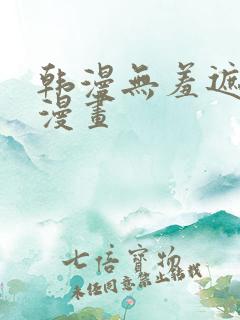 韩漫無羞遮
漫畫
七倍寶物
未经同意禁止转载